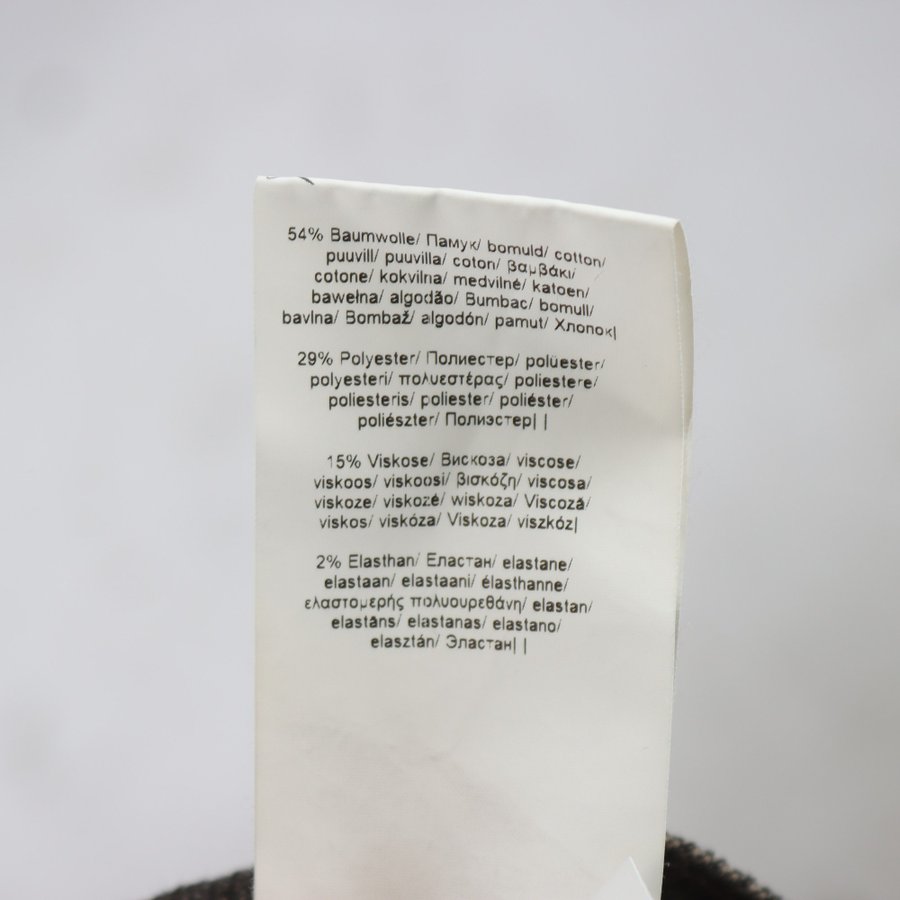 54% Baumwolle/ Памук/ bomuld/ cotton/
puuvill/ puuvilla/ coton/ βαμβάκι/
cotone/ kokvilna/ medvilnė/ katoen/
bawełna/ algodão/ Bumbac/ bomull/
bavlna/ Bombaž/ algodón/ pamut/ Хлопок|
29% Polyester/ Полиестер/ polüester/
polyesteri/ πολυεστέρας/ poliestere/
poliesteris/ poliester/ poliéster/
poliészter/ Полиэстер| |
15% Viskose/ Вискоза/ viscose/
viskoos/ viskoosi/ βισκόζη/ viscosa/
viskoze/ viskozė/ wiskoza/ Viscoză/
viskos/ viskóza/ Viskoza/ viszkóz|
2% Elasthan/ Еластан/ elastane/
elastaan/ elastaani/ élasthanne/
ελαστομερής πολυουρεθάνη/ elastan/
elastāns/ elastanas/ elastano/
elasztán/ Эластан| |